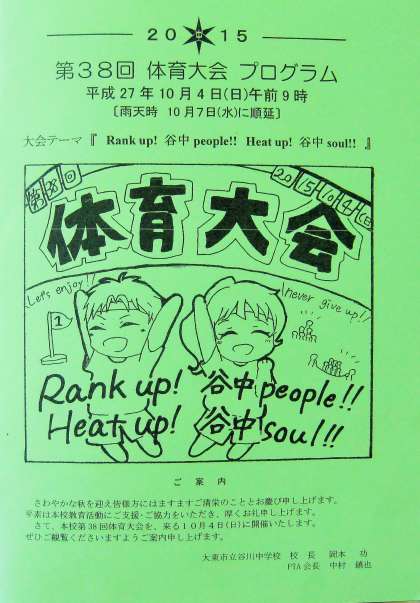 20 15
第38回 体育大会 プログラム
平成27年10月4日(日)午前9時
〔雨天時 10月7日(水)に順延〕
大会テーマ『 Rank up! 谷中 people!! Heat up! 谷中 soul!! 』
第38回
2015・10・4(日)
体育大会
Let's enjoy!!
never give up!!
1
Rank up! 谷中people!!
Heat up! 谷中soul!!
ご 案 内
さわやかな秋を迎え皆様方にはますますご清栄のこととお慶び申し上げます。
平素は本校教育活動にご支援・ご協力をいただき、厚くお礼申し上げます。
さて、本校第38回体育大会を、来る10月4日(日)に開催いたします。
ぜひご観覧くださいますようご案内申し上げます。
大東市立谷川中学校 校 長 岡本 功
PTA会長 中村 鎮也